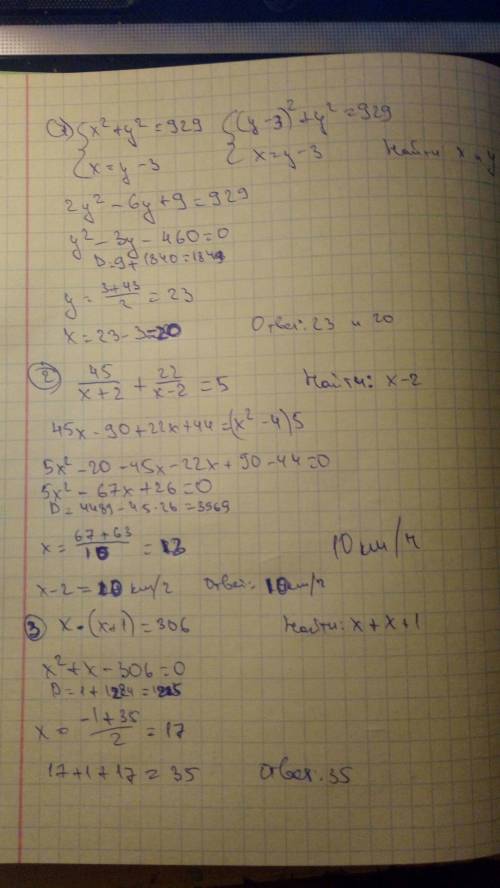 1) { x² + y² = 929   { (y-3)² + y² = 929
x = y - 3   x = y - 3   Найти x и y
2y² - 6y + 9 = 929
y² - 3y - 460 = 0
D = 9 + 1840 = 1849
y = (3+43)/2 = 23
x = 23 - 3 = 20   Ответ: 23 и 20
2) 45/(x+2) + 22/(x-2) = 5   Найти: x-2
45x - 90 + 22x + 44 = (x² - 4)5
5x² - 20 - 45x - 22x + 90 - 44 = 0
5x² - 67x + 26 = 0
D = 4489 - 4·5·26 = 3969
x = (67+63)/10 = 13   10 км/ч
x - 2 = 10 км/ч   Ответ: 10 км/ч
3) x·(x+1) = 306   Найти: x + x + 1
x² + x - 306 = 0
D = 1 + 1224 = 1225
x = (-1+35)/2 = 17
17 + 1 + 17 = 35   Ответ: 35